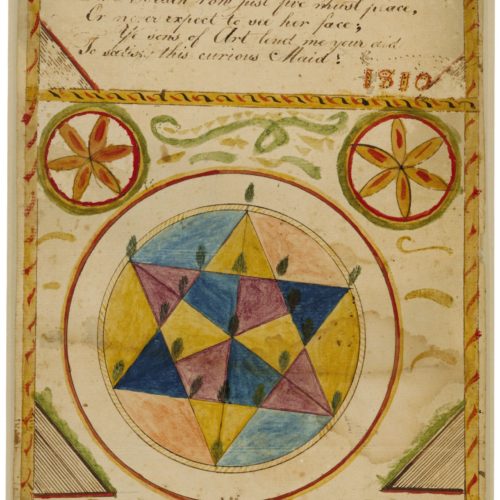 just five must place,
Or never expect to see her face;
Ye sons of Art lend me your aid
To satisfy this curious Maid!
1810